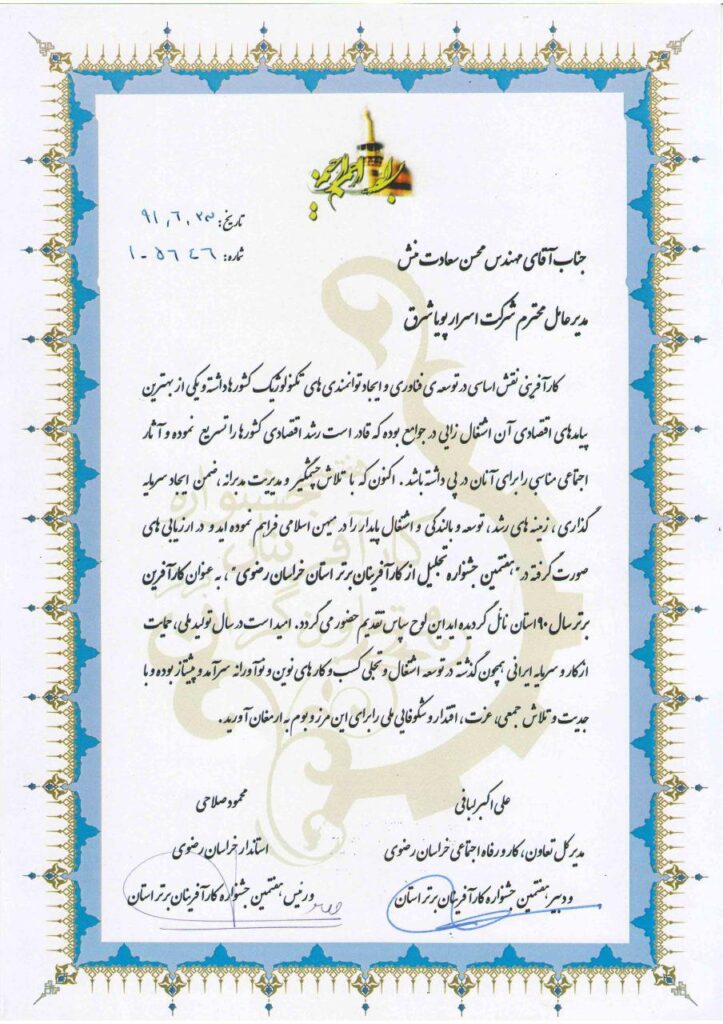 بسم الله الرحمن الرحیم
تاریخ: ۹۱٫۶٫۲۳
شماره: ۱۰۵۶۴۶
جناب آقای مهندس محسن سعادت منش
مدیرعامل محترم شرکت اسرار پویا شرق
کارآفرینی نقش اساسی در توسعه ی فناوری و ایجاد توانمندی های تکنولوژیک کشورها داشته و یکی از بهترین
پیامدهای اقتصادی آن اشتغال زایی در جوامع بوده که قادر است رشد اقتصادی کشورها را تسریع نموده و آثار
اجتماعی مناسبی را برای آنان در پی داشته باشد. اکنون که با تلاش چشمگیر و مدیریت مدبرانه، ضمن ایجاد سرمایه
گذاری، زمینه های رشد، توسعه و بالندگی و اشتغال پایدار را در میهن اسلامی فراهم نموده اید و در ارزیابی های
صورت گرفته در "هفتمین جشنواره تجلیل از کارآفرینان برتر استان خراسان رضوی"، به عنوان کارآفرین
برتر سال ۹۰ استان نائل گردیده اید این لوح سپاس تقدیم حضور می گردد. امید است در سال تولید ملی، حمایت
از کار و سرمایه ایرانی همچون گذشته در توسعه اشتغال و تجلی کسب و کارهای نوین و نوآورانه سرآمد و پیشتاز بوده و با
جدیت و تلاش جمعی، عزت، اقتدار و شکوفایی ملی را برای این مرز و بوم به ارمغان آورید.
علی اکبر لبافی
مدیر کل تعاون، کار و رفاه اجتماعی خراسان رضوی
و دبیر هفتمین جشنواره کارآفرینان برتر استان
محمود صلاحی
استاندار خراسان رضوی
و رئیس هفتمین جشنواره کارآفرینان برتر استان